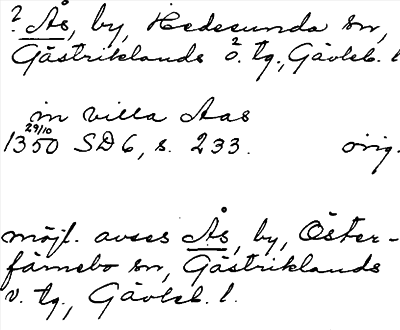 ? Ås, by, Hedesunda sn,
Gästriklands ö. tg., Gävleb. l
in villa Aas
1350 29/10 SD 6, s. 233. orig.
möjl. avses Ås, by, Öster-
färnebo sn, Gästriklands
v. tg., Gävleb. l.